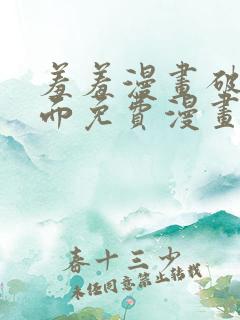 羞羞漫畫破
而免費漫畫
春十三少
未经同意禁止转载